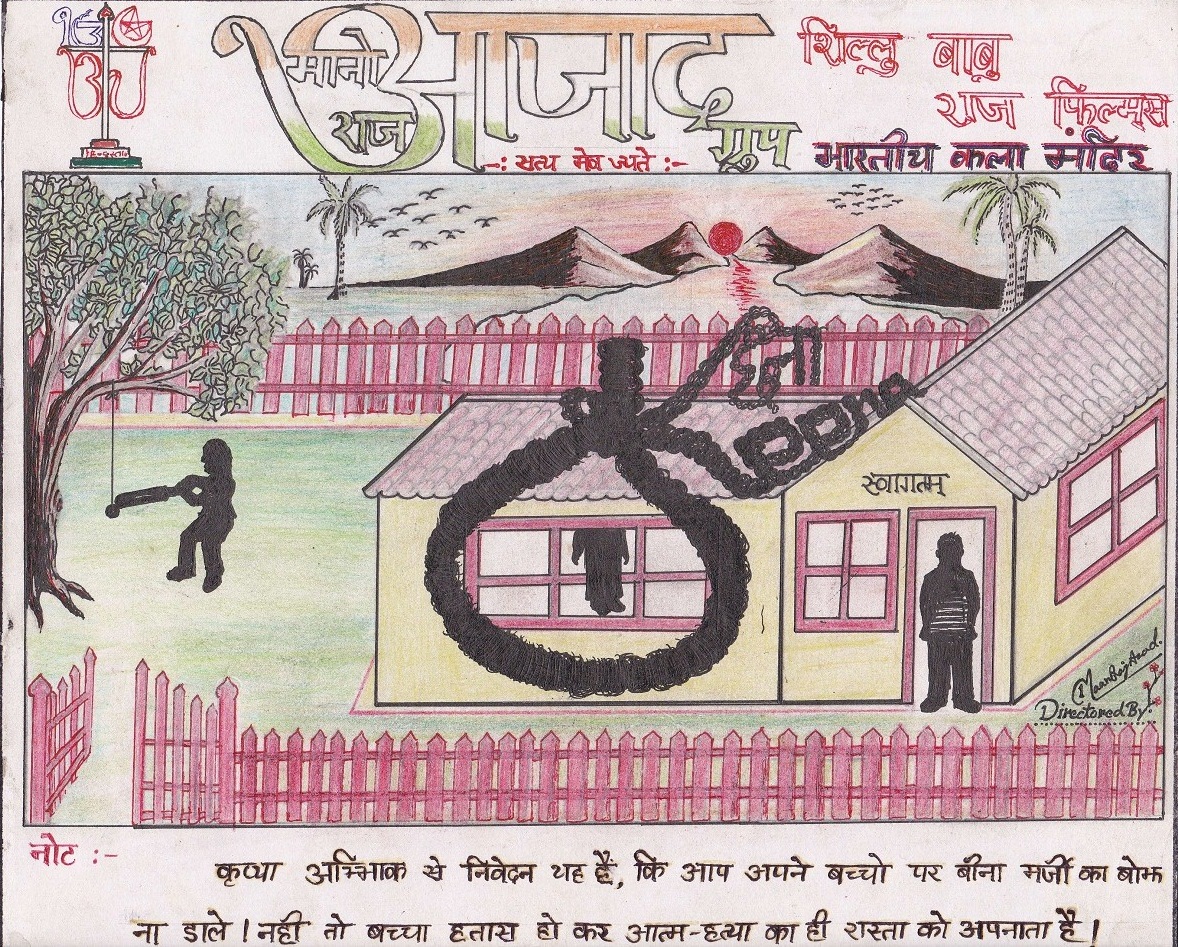 हिन्दुस्तान
मानो
राज
आजाद
ग्रुप
-: सत्य मेव ज्यते :-
शिल्लु बाबु
राज फिल्मस
भारतीय कला मंदिर
स्वागतम्
ManRaj Azad.
Directored By:
नोट :-
कृप्या अभिभाक से निवेदन यह है, कि आप अपने बच्चो पर बीना मर्जी का बोझ
ना डाले। नही तो बच्चा हतास हो कर आत्म-हत्या का ही रास्ता को अपनाता है।